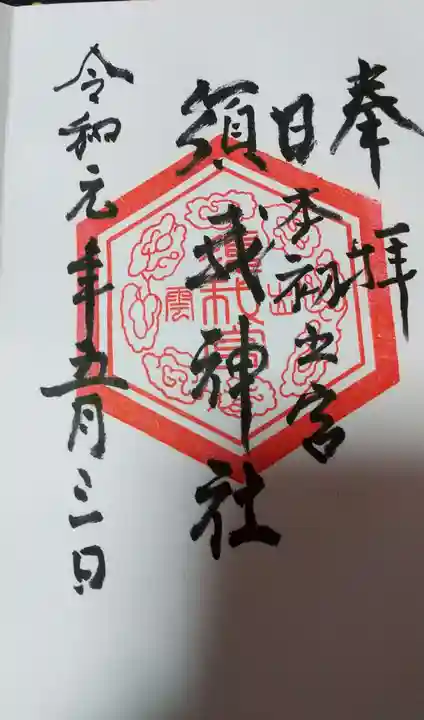 奉拝
日本初之宮
須我神社
令和元年五月三日